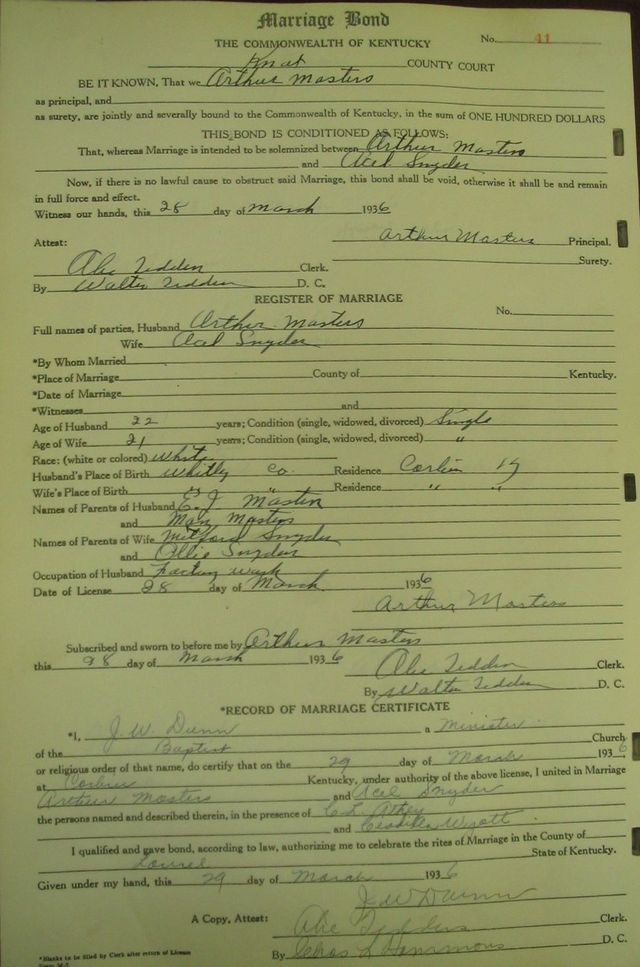 Marriage Bond
THE COMMONWEALTH OF KENTUCKY No. 41
Knox COUNTY COURT
BE IT KNOWN, That we Arthur Masters
as principal, and
as surety, are jointly and severally bound to the Commonwealth of Kentucky, in the sum of ONE HUNDRED DOLLARS
THIS BOND IS CONDITIONED AS FOLLOWS:
That, whereas Marriage is intended to be solemnized between Arthur Masters
and Acel Snyder
Now, if there is no lawful cause to obstruct said Marriage, this bond shall be void, otherwise it shall be and remain
in full force and effect.
Witness our hands, this 28 day of March 1936
Arthur Masters Principal.
Attest:
Surety.
Abe Tedders Clerk.
By Walter Tedders D. C.
REGISTER OF MARRIAGE
No.
Full names of parties, Husband Arthur Masters
Wife Acel Snyder
*By Whom Married
*Place of Marriage County of Kentucky.
*Date of Marriage
*Witnesses and
Age of Husband 22 years; Condition (single, widowed, divorced) Single
Age of Wife 21 years; Condition (single, widowed, divorced) "
Race: (white or colored) White
Husband's Place of Birth Whitley Co. Residence Corbin Ky
Wife's Place of Birth " " Residence " "
Names of Parents of Husband E. J. Masters
and Masters
Names of Parents of Wife Milford Snyder
and Ollie Snyder
Occupation of Husband Factory work
Date of License 28 day of March 1936
Arthur Masters
Subscribed and sworn to before me by Arthur Masters
this 28 day of March 1936
Abe Tedders Clerk.
By Walter Tedders D. C.
*RECORD OF MARRIAGE CERTIFICATE
*I, J. W. Dunn a Minister
of the Baptist Church
or religious order of that name, do certify that on the 29 day of March 1936
at Corbin Kentucky, under authority of the above license, I united in Marriage
Arthur Masters and Acel Snyder
the persons named and described therein, in the presence of C. L. Athey
and Wyatt
I qualified and gave bond, according to law, authorizing me to celebrate the rites of Marriage in the County of
Laurel State of Kentucky.
Given under my hand, this 29 day of March 1936
J W Dunn
A Copy, Attest: Abe Tedders Clerk.
By Chas L Hammons D. C.
*Blanks to be filled by Clerk after return of License